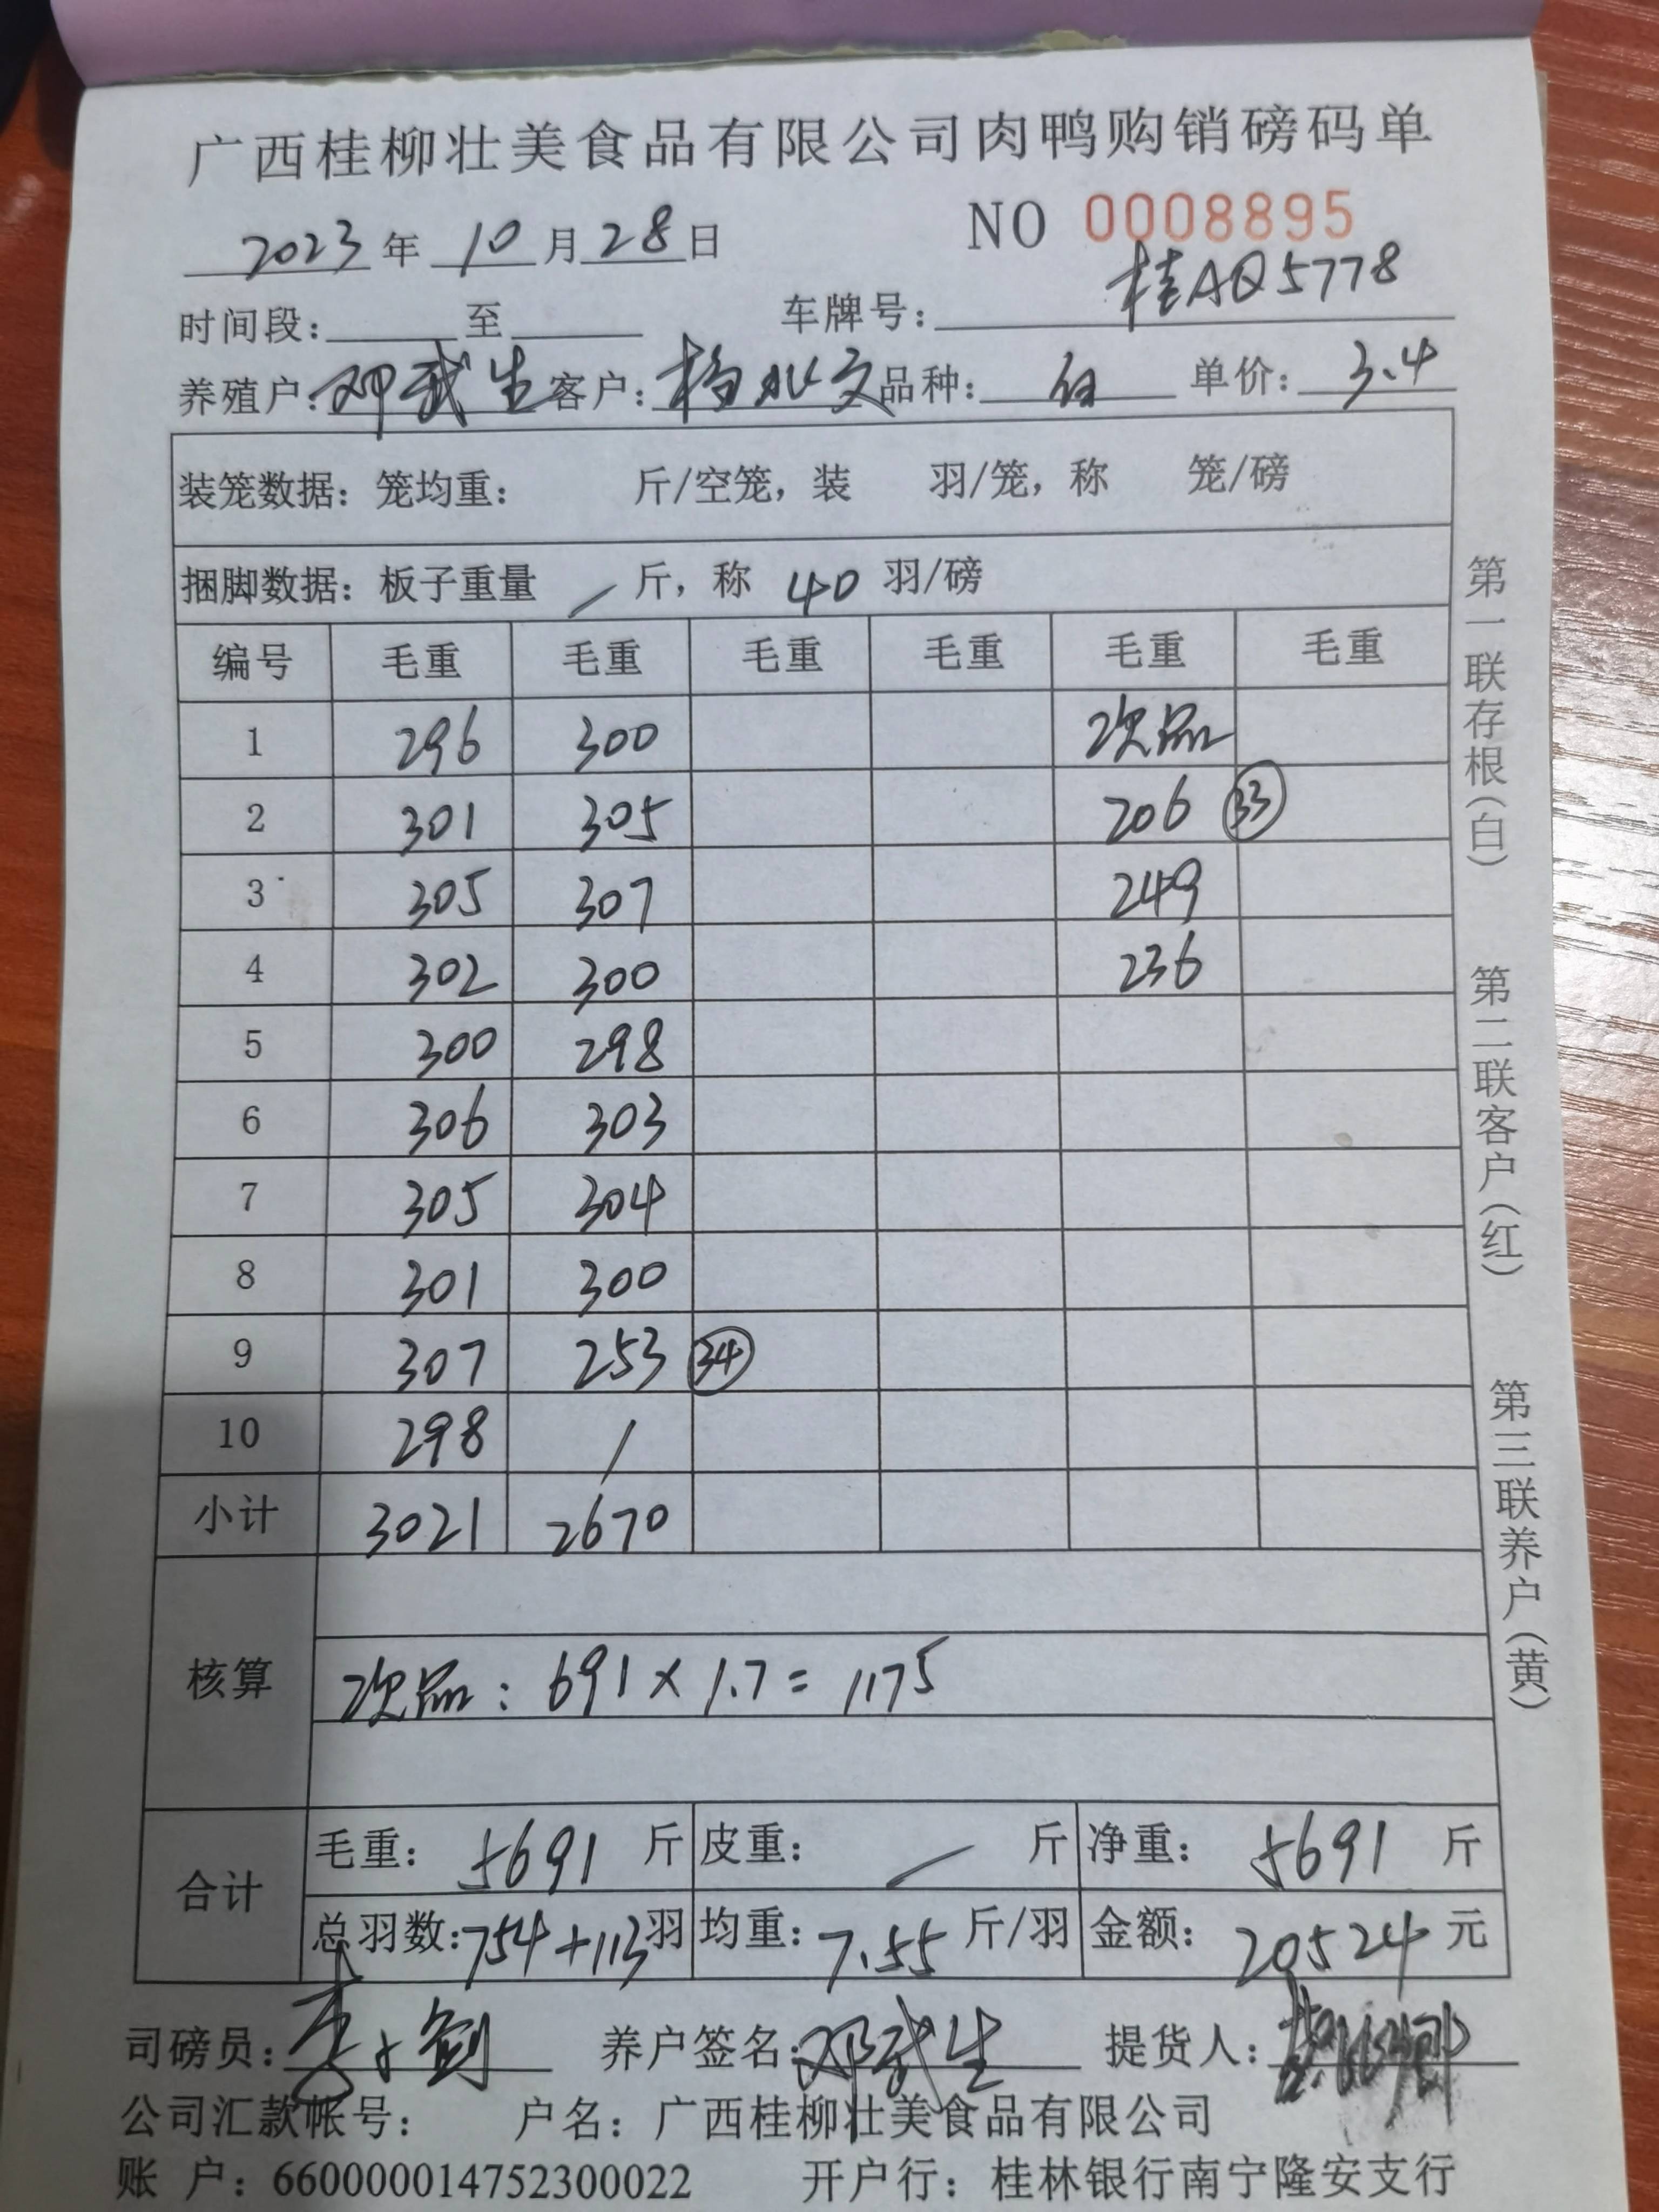 广西桂柳壮美食品有限公司肉鸭购销磅码单
2023年 10月28日 NO 0008895
时间段： 至 车牌号：桂AQ5778
养殖户：邓武生 客户：杨 文 品种：白 单价：3.4
装笼数据：笼均重： 斤/空笼，装 羽/笼，称 笼/磅
捆脚数据：板子重量 / 斤，称 40 羽/磅
编号 毛重 毛重 毛重 毛重 毛重 毛重
1 296 300 次品
2 301 305 206 33
3 305 307 249
4 302 300 236
5 300 298
6 306 303
7 305 304
8 301 300
9 307 253 34
10 298 /
小计 3021 2670
核算
次品：691×1.7=1175
合计
毛重：5691 斤 皮重：/ 斤 净重：5691 斤
总羽数：754+113羽 均重：7.55 斤/羽 金额：20524 元
司磅员： 养户签名：邓武生 提货人：
公司汇款帐号： 户名：广西桂柳壮美食品有限公司
账 户：660000014752300022 开户行：桂林银行南宁隆安支行
第一联存根（白）
第二联客户（红）
第三联养户（黄）